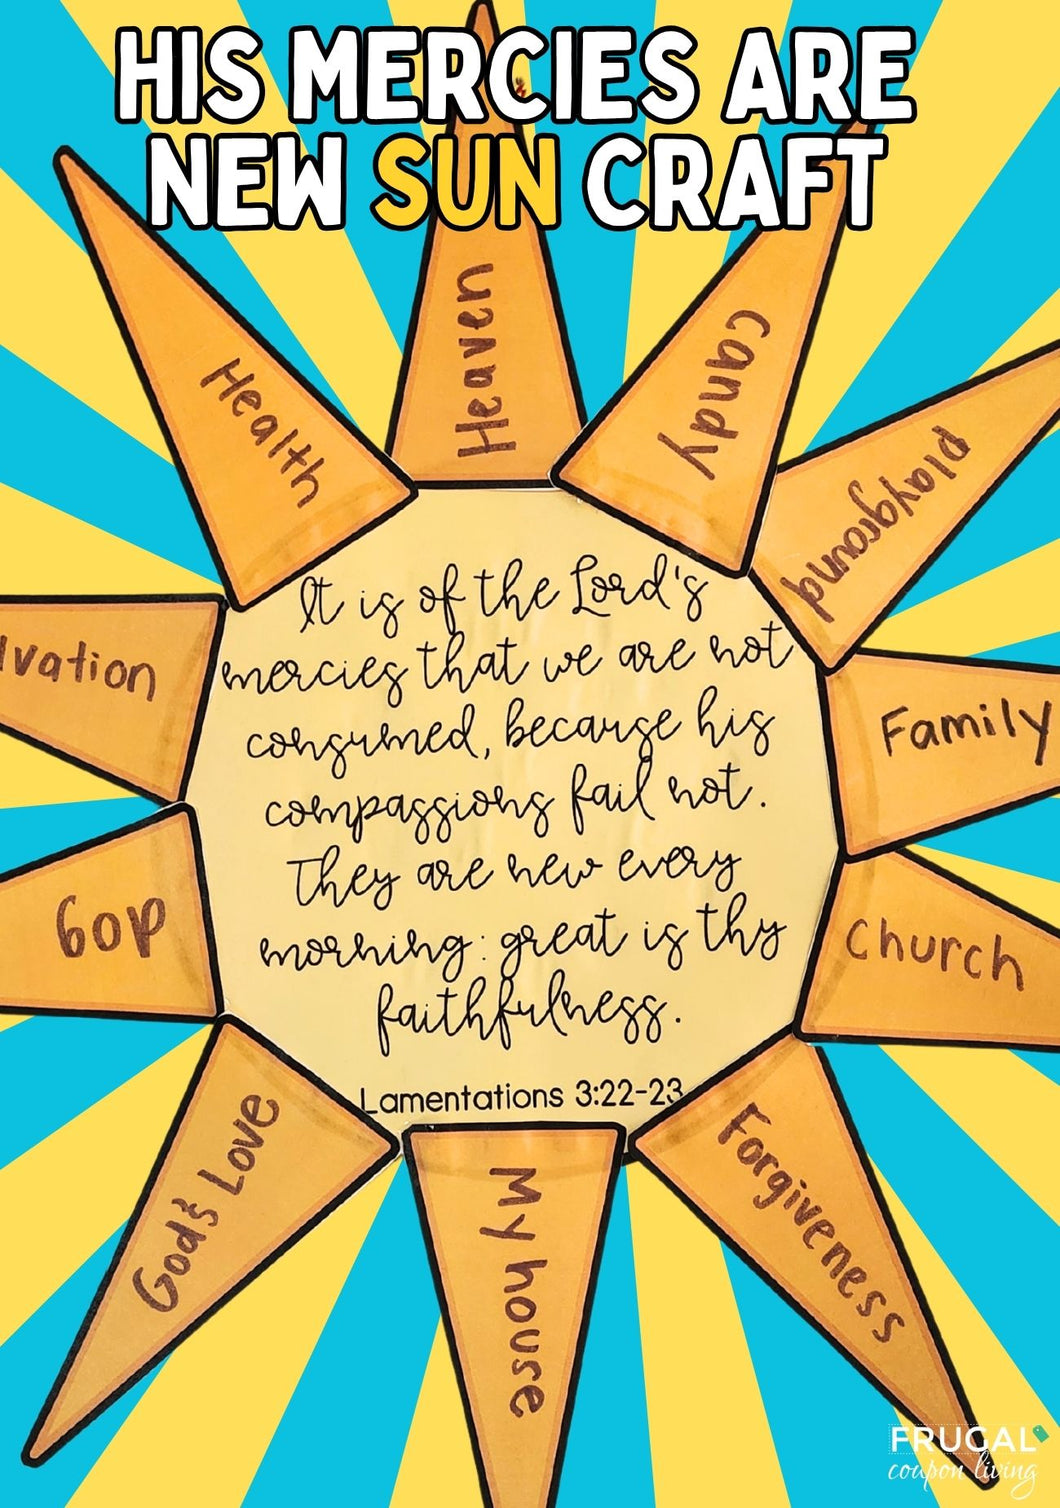 HIS MERCIES ARE
NEW SUN CRAFT
Health
Heaven
Candy
playground
lvation
Family
dog
Church
God's Love
My house
Forgiveness
It is of the Lord's
mercies that we are not
consumed, because his
compassions fail not.
They are new every
morning: great is thy
faithfulness.
Lamentations 3:22-23
FRUGAL
coupon living